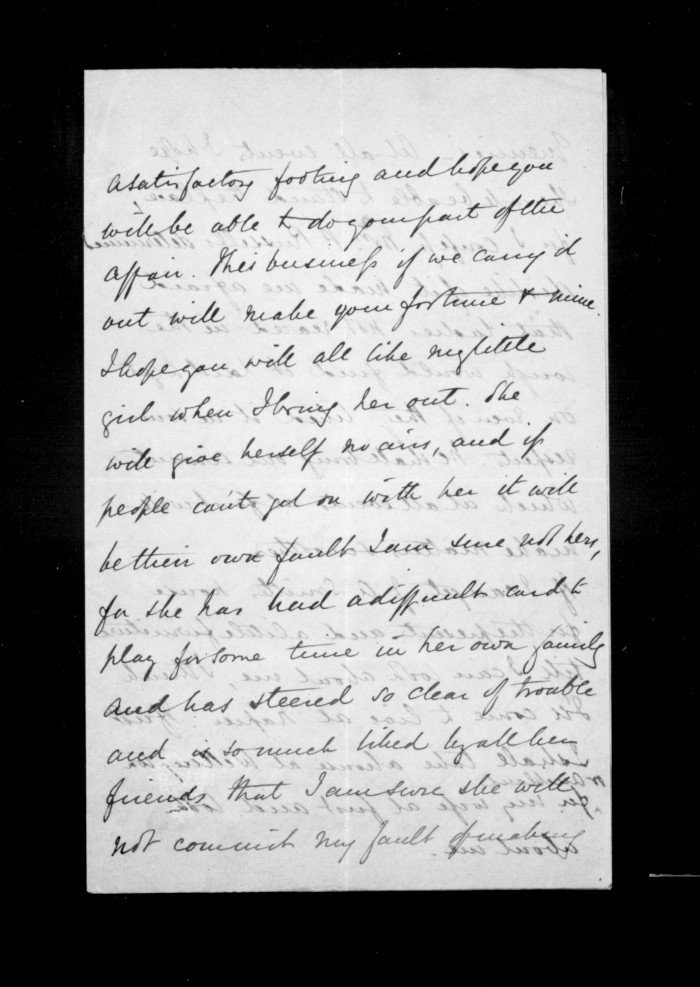 a satisfactory footing and hope you
will be able to do your part of the
affair. This business if we carry it
out will make your fortune & mine.
I hope you will all like my little
girl when I bring her out. She
will give herself no airs, and if
people can't get on with her it will
be their own fault I am sure not hers,
for she has had a difficult card to
play for some time in her own family
and has steered so clear of trouble
and is so much liked by all her
friends that I am sure she will
not commit my fault of making